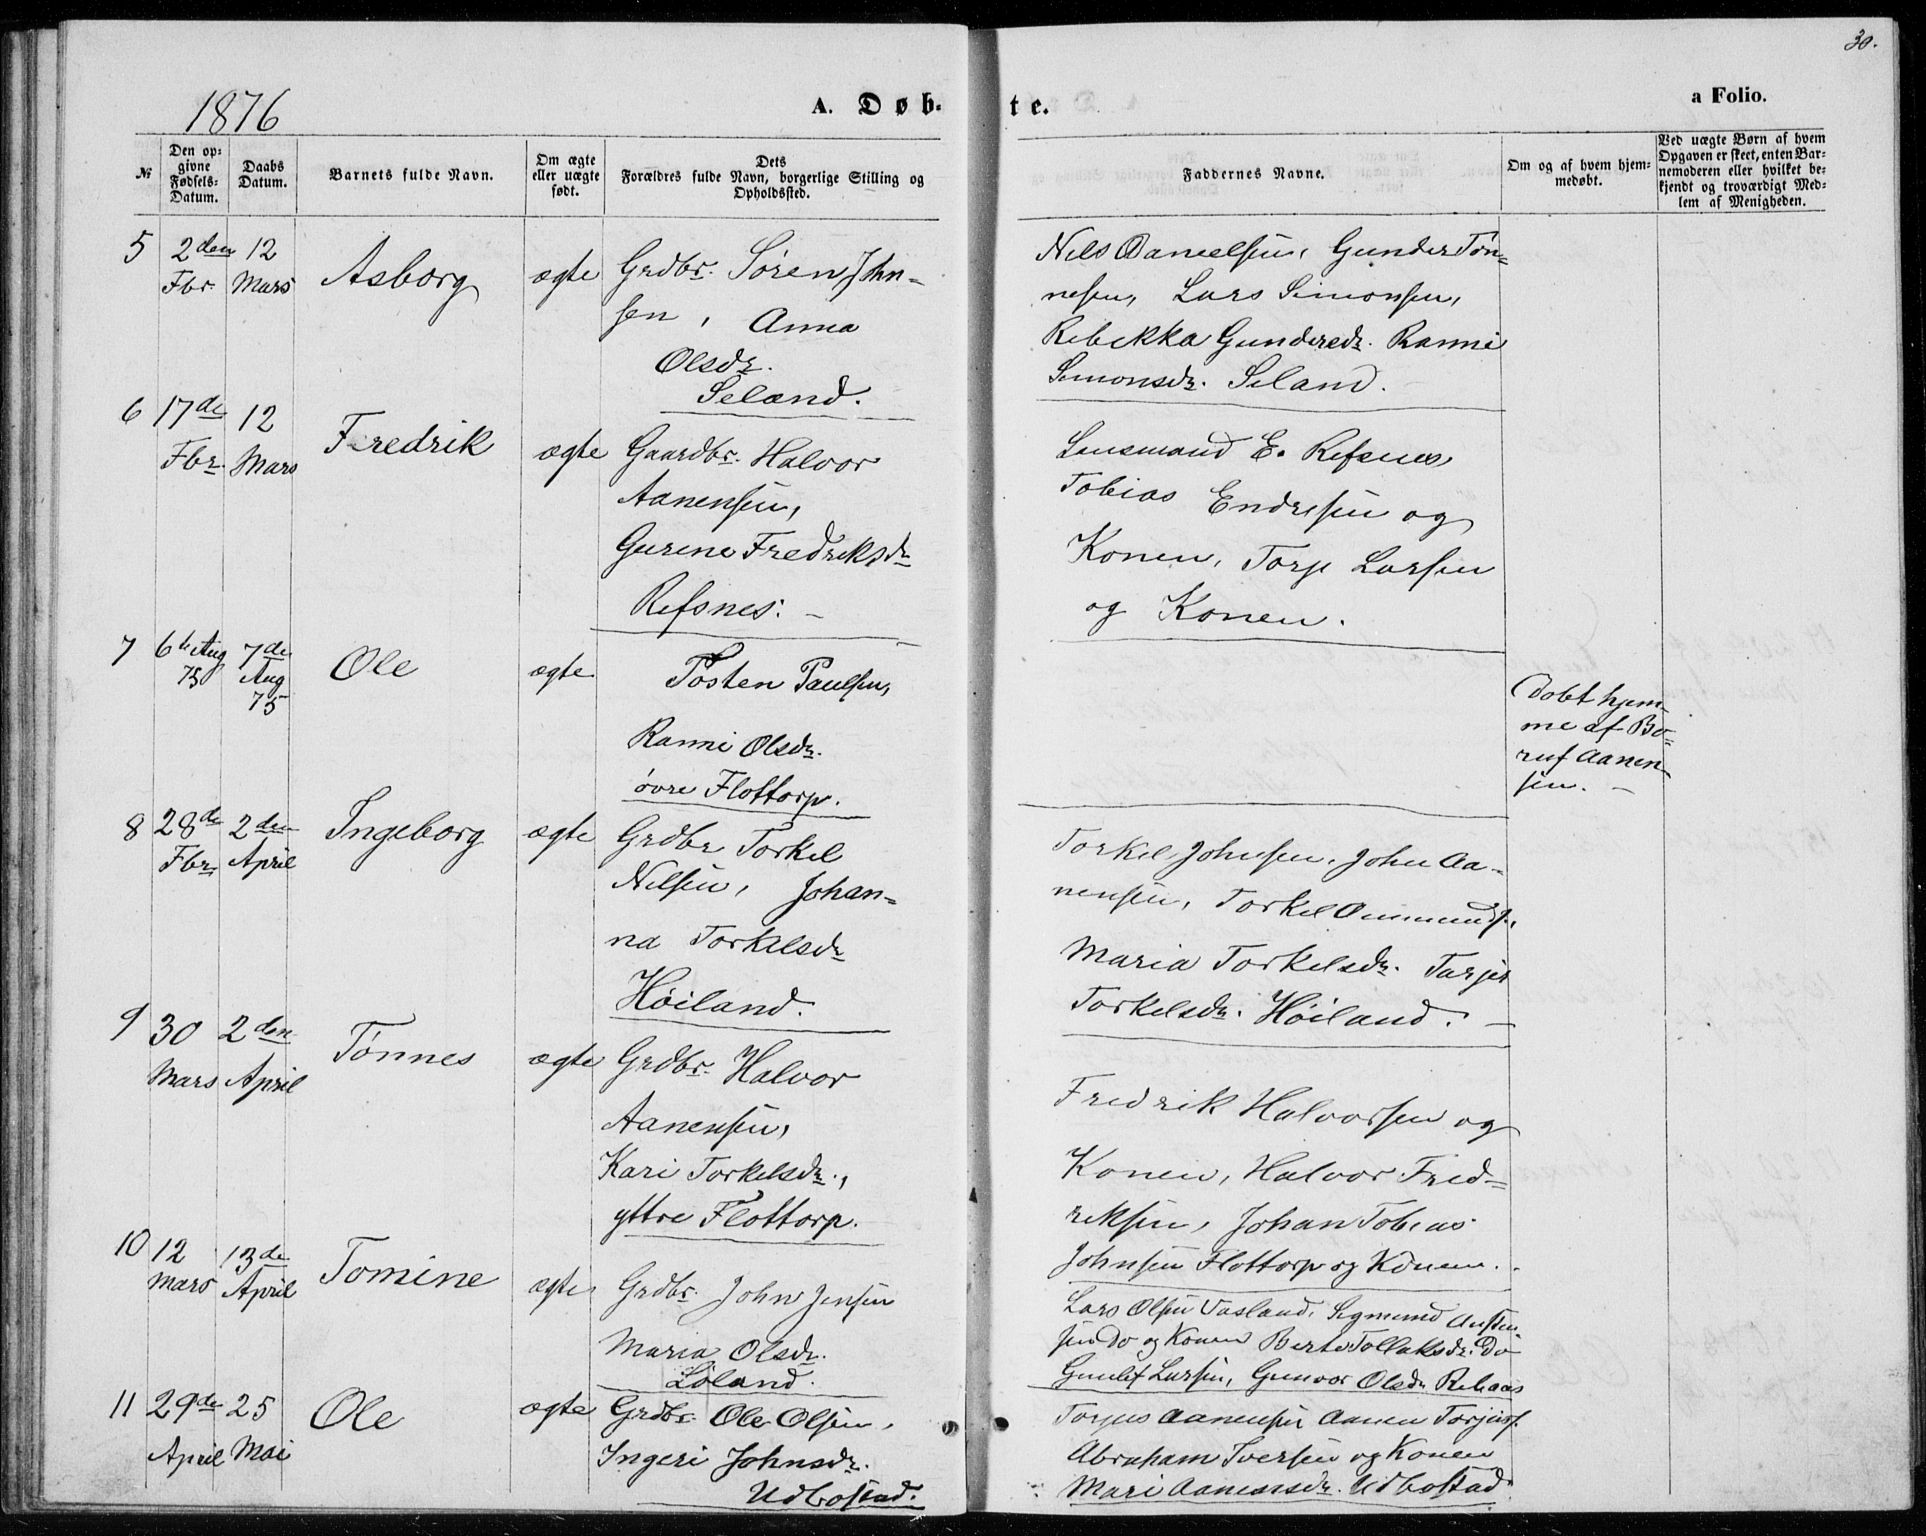 30.
1876
A. Døb-
te.
a Folio.
№
Den op-
givne
Fødsels-
Datum.
Daabs
Datum.
Barnets fulde Navn.
Om ægte
eller uægte
født.
Dets
Forældres fulde Navn, borgerlige Stilling og
Opholdssted.
Faddernes Navne.
Om og af hvem hjem-
medøbt.
Ved uægte Børn af hvem
Opgaven er skeet, enten Bar-
nemoderen eller hvilket be-
kjendt og troværdigt Med-
lem af Menigheden.
5 2den 12
Fbr. Mars
Asborg
ægte
Grdbr. Søren John-
sen, Anna
Olsdr.
Seland.
Nils Danielsen, Gunder Tøn-
nesen, Lars Simonsen,
Rebekka Gundersdr. Ranni
Simonsdr. Seland.
6 17de 12
Fbr. Mars
Fredrik
ægte
Gaardbr. Halvor
Aanensen,
Gurine Fredriksdr
Refsnes. -
Lensmand E. Refsnes
Tobias Endresen og
Konen, Torje Larsen
og Konen.
7 6te Aug 7de
75 Aug
75
Ole
ægte
Tosten Paulsen,
Ranni Olsdr.
øvre Flottorp.
Døbt hjem-
me af Bo-
ruf Aanen-
sen. -
8 28de 2den
Fbr. April
Ingeborg
ægte
Grdbr Torkel
Nilsen, Johan-
na Torkelsdr
Høiland.
Torkel Johnsen, John Aa-
nensen, Torkel Ommunds.,
Maria Torkelsdr. Tarjer
Torkelsdr. Høiland. -
9 30 2den
Mars April
Tønnes
ægte
Grdbr. Halvor
Aanensen,
Kari Torkelsdr.,
yttre Flottorp.
Fredrik Halvorsen og
Konen, Halvor Fred-
riksen, Johan Tobias
Johnsen Flottorp og Konen.
10 12 13de
Mars April
Tomine
ægte
Grdbr. John Jensen
Maria Olsdr.
Løland.
Lars Olsen Vasland, Sigmund Austen-
sen Do og Konen Berte Tollaksdr. Do
Gunlef Larsen, Gunvor Olsdr Rehaas
11 29de 25
April Mai
Ole
ægte
Grdbr. Ole Olsen,
Ingeri Johnsdr.
Udbostad.
Torjus Aanensen Aanen Torjuss.
Abraham Iversen og Konen
Mari Aanensdr. Udbostad